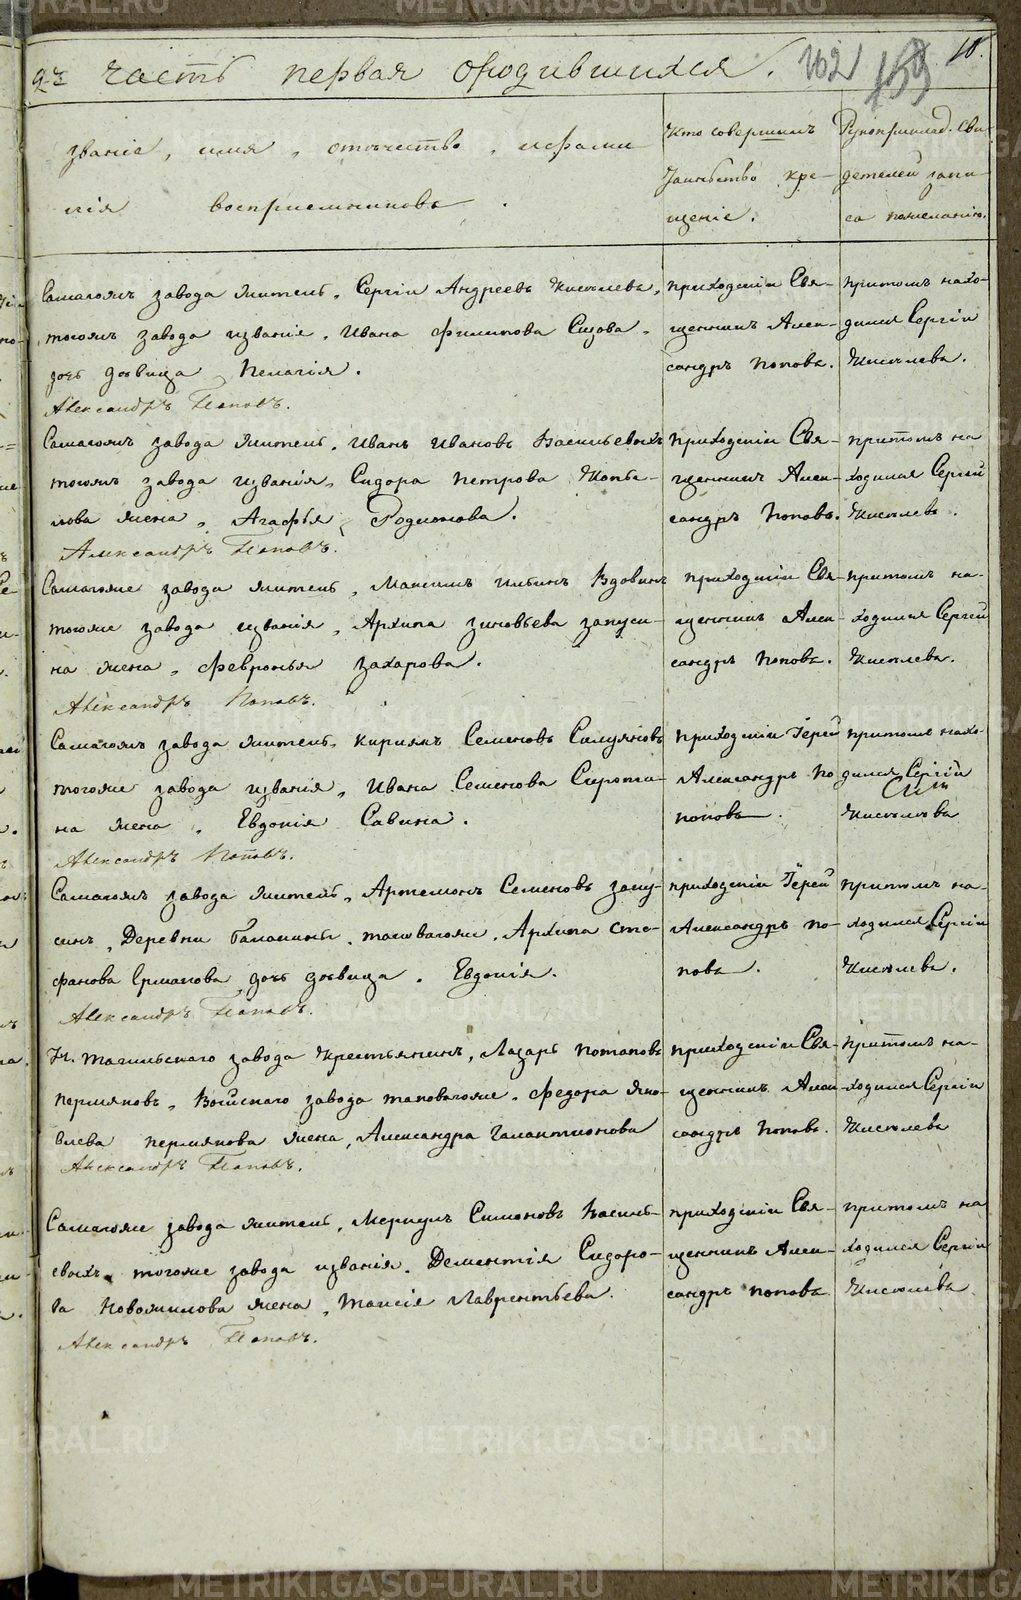 METRIKI.GASO-URAL.RU
часть первая ородившихся.
162
159
18.
званіе, имя, отчество, ифами
лія воспріемниковъ.
Кто совершилъ
Таинство кре-
щеніе.
Рукоприклад. сви
детелей запи
са пожеланію.
завода житель, Сергіи Андреевъ Киселевъ,
завода званія, Ивана Филипова Сизова
дочь девица Пелагія.
Александръ Поповъ.
приходскіи Свя-
щенникъ Алек-
сандръ Поповъ.
притомъ нахо-
дился Сергіи
Киселевъ.
завода житель, Иванъ Ивановъ Васильевыхъ
завода званія, Сидора Петрова Копы-
лова жена, Агафья Родионова.
Александръ Поповъ.
приходскіи Свя-
щенникъ Алек-
сандръ Поповъ.
притомъ на
ходился Сергей
Киселевъ.
Самагоже завода житель, Максимъ Ильинъ Вдовинъ
тогоже завода званія, Архипа Зиновьева Запуси-
на жена, Февронья Захарова.
Александръ Поповъ.
приходскіи Свя-
щенникъ Алек-
сандръ Поповъ.
притомъ на-
ходился Сергей
Киселевъ.
завода житель, Кирилъ Семеновъ Силуяновъ
тогоже завода званія, Ивана Семенова Сироти-
на жена, Евдокія Савина.
Александръ Поповъ.
приходскіи Іерей
Александръ По
поповъ.
притомъ нахо-
дился Сергіи
Киселевъ
завода житель, Артемонъ Семеновъ Запу-
синъ, Деревни Балакины, таковагоже, Архипа Сте-
фанова Ермакова дочь девица, Евдокія.
Александръ Поповъ.
приходскіи Іерей
Александръ По-
повъ.
притомъ на-
ходился Сергіи
Киселевъ.
Н. Тагильскаго завода крестьянинъ, Лазарь Потаповъ
Пермяковъ, Войскаго завода таковагоже, Федора Яко-
влева Пермякова жена, Александра Галактионова
Александръ Поповъ.
приходскіи Свя-
щенникъ Алек-
сандръ Поповъ.
притомъ на-
ходился Сергіи
Киселевъ
Самагоже завода житель, Меркулъ Симоновъ Василь-
евыхъ, тогоже завода званія, Дементія Сидоро-
ва Новожилова жена, Таисія Лаврентьева.
Александръ Поповъ.
приходскіи Свя-
щенникъ Алек-
сандръ Поповъ
притомъ на
ходился Сергіи
Киселевъ